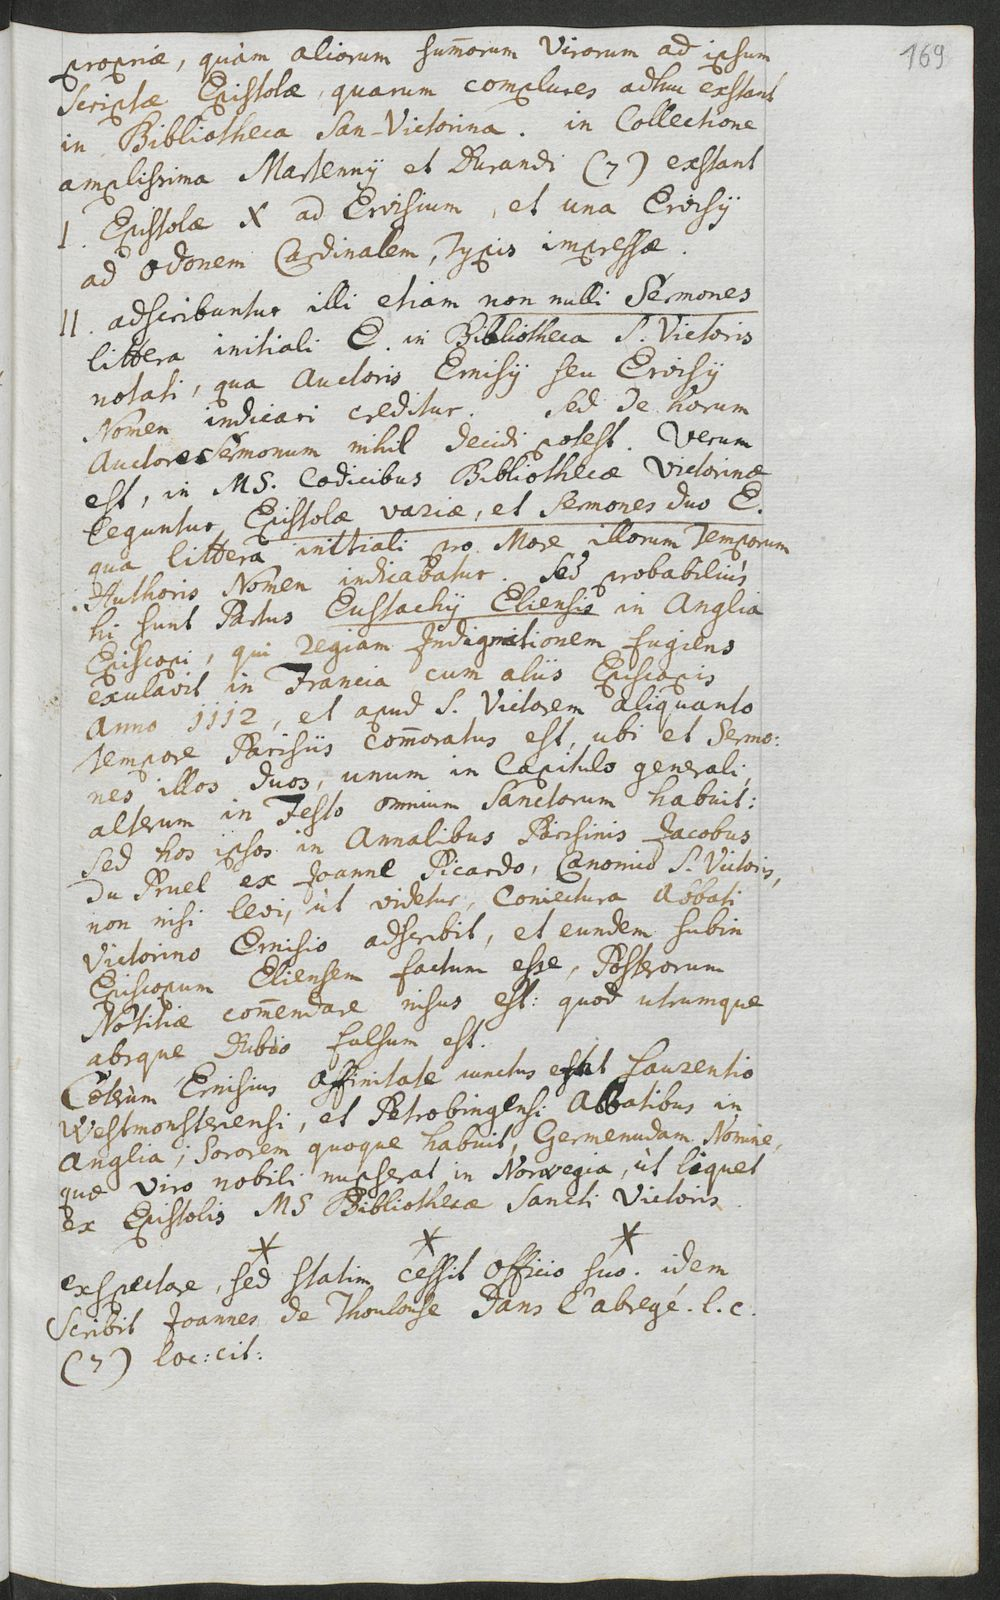 169
propriæ, quàm aliorum sum̄orum Virorum ad ipsum
scriptæ Epistolæ, quarum complures adhuc exstant
in Bibliotheca San-Victorina. in Collectione
amplissima Martennij et Durandi (7) exstant
I. Epistolæ X ad Ervisium, et una Ervisij
ad Odonem Cardinalem, typis impressæ.
II. adscribuntur illi etiam non nulli Sermones
littera initiali E. in Bibliotheca S. Victoris
notati, qua Auctoris Ernisij seu Ervisij
Nomen indicari creditur. Sed de horum
Auctore Sermonum nihil decidi potest. Verum
est, in MS. Codicibus Bibliothecæ Victorinæ
leguntur Epistolæ variæ, et Sermones duo E.
qua littera initiali pro More illorum Temporum
Authoris Nomen indicabatur. Sed probabiliùs
hi sunt Partus Eustachij Eliensis in Anglia
Episcopi, qui regiam Indignationem fugiens
exulavit in Francia cum aliis Episcopis
Anno 1112, et apud S. Victorem aliquanto
tempore Parisiis com̄oratus est, ubi et Sermo:
nes illos duos, unum in Capitulo generali,
alterum in Festo omnium Sanctorum habuit:
sed hos ipsos in Annalibus Parisinis Jacobus
Du Pruel ex Joanne Picardo, Canonico S. Victoris,
non nisi levi, ùt videtur, Coniectura Abbati
Victorino Ernisio adscribit, et eundem subin
Episcopum Eliensem factum esse, Posterorum
Notitiæ com̄endare nisus est: quod utrumque
absque Dubio falsum est.
Cæterùm Ernisius Affinitate iunctus est Laurentio
Westmonsteriensi, et Petrobingensi Abbatibus in
Anglia; Sororem quoque habuit, Germenudam Nomine,
quæ Viro nobili nupserat in Norvegia, ùt liquet
ex Epistolis MS Bibliothecæ Sancti Victoris.
* * *
exspectare, sed statim cessit Officio suo. idem
scribit Joannes de Thoulouse Dans l'abregé. l. c.
(7) loc: cit: